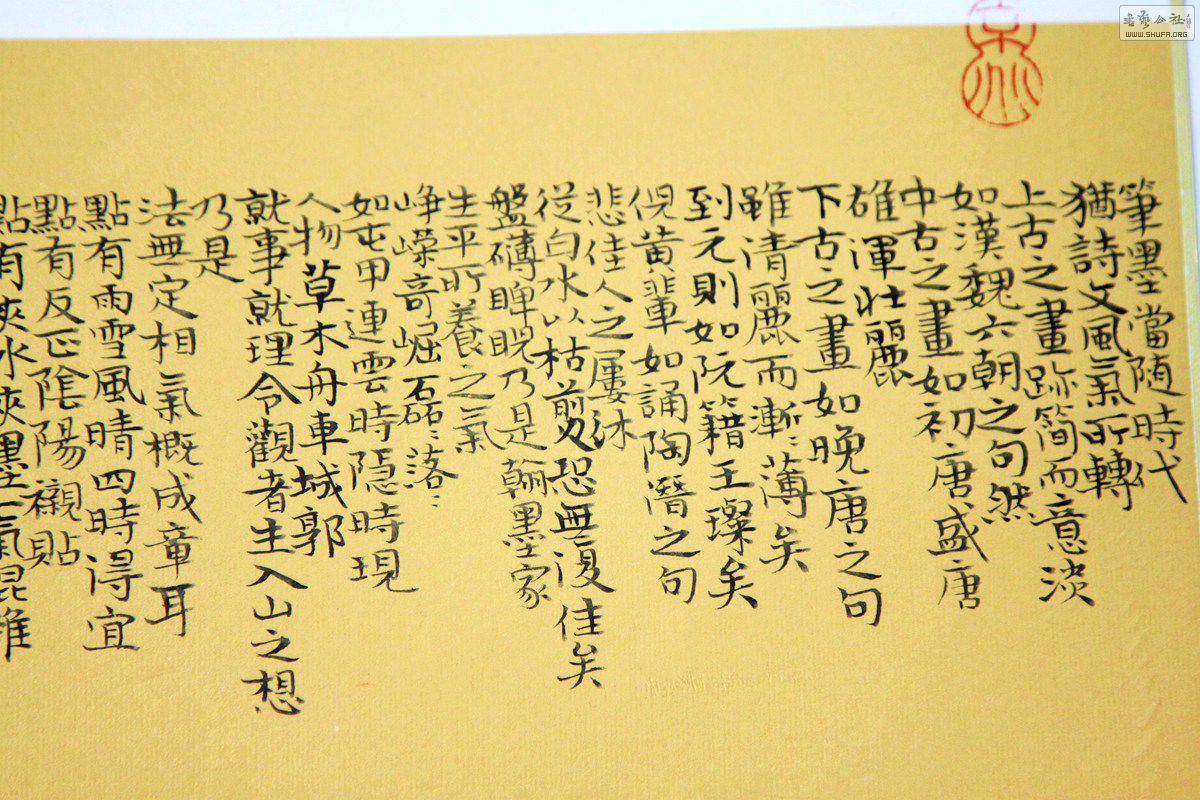 筆墨當隨時代
猶詩文風氣所轉
上古之畫跡簡而意淡
如漢魏六朝之句然
中古之畫如初唐盛唐
雄渾壯麗
下古之畫如晚唐之句
雖清麗而漸漸薄矣
到元則如阮籍王粲矣
倪黃輩如誦陶潛之句
悲佳人之屢沐
從白水以枯煎恐無復佳矣
盤礴睥睨乃是翰墨家
生平所養之氣
崢嶸奇崛磊磊落落
如屯甲連雲時隱時現
人物草木舟車城郭
就事就理令觀者生入山之想
乃是
法無定相氣概成章耳
點有雨雪風晴四時得宜
點有反正陰陽襯貼
點有夾水夾墨一氣混雜
書藝公社
WWW.SHUFA.ORG